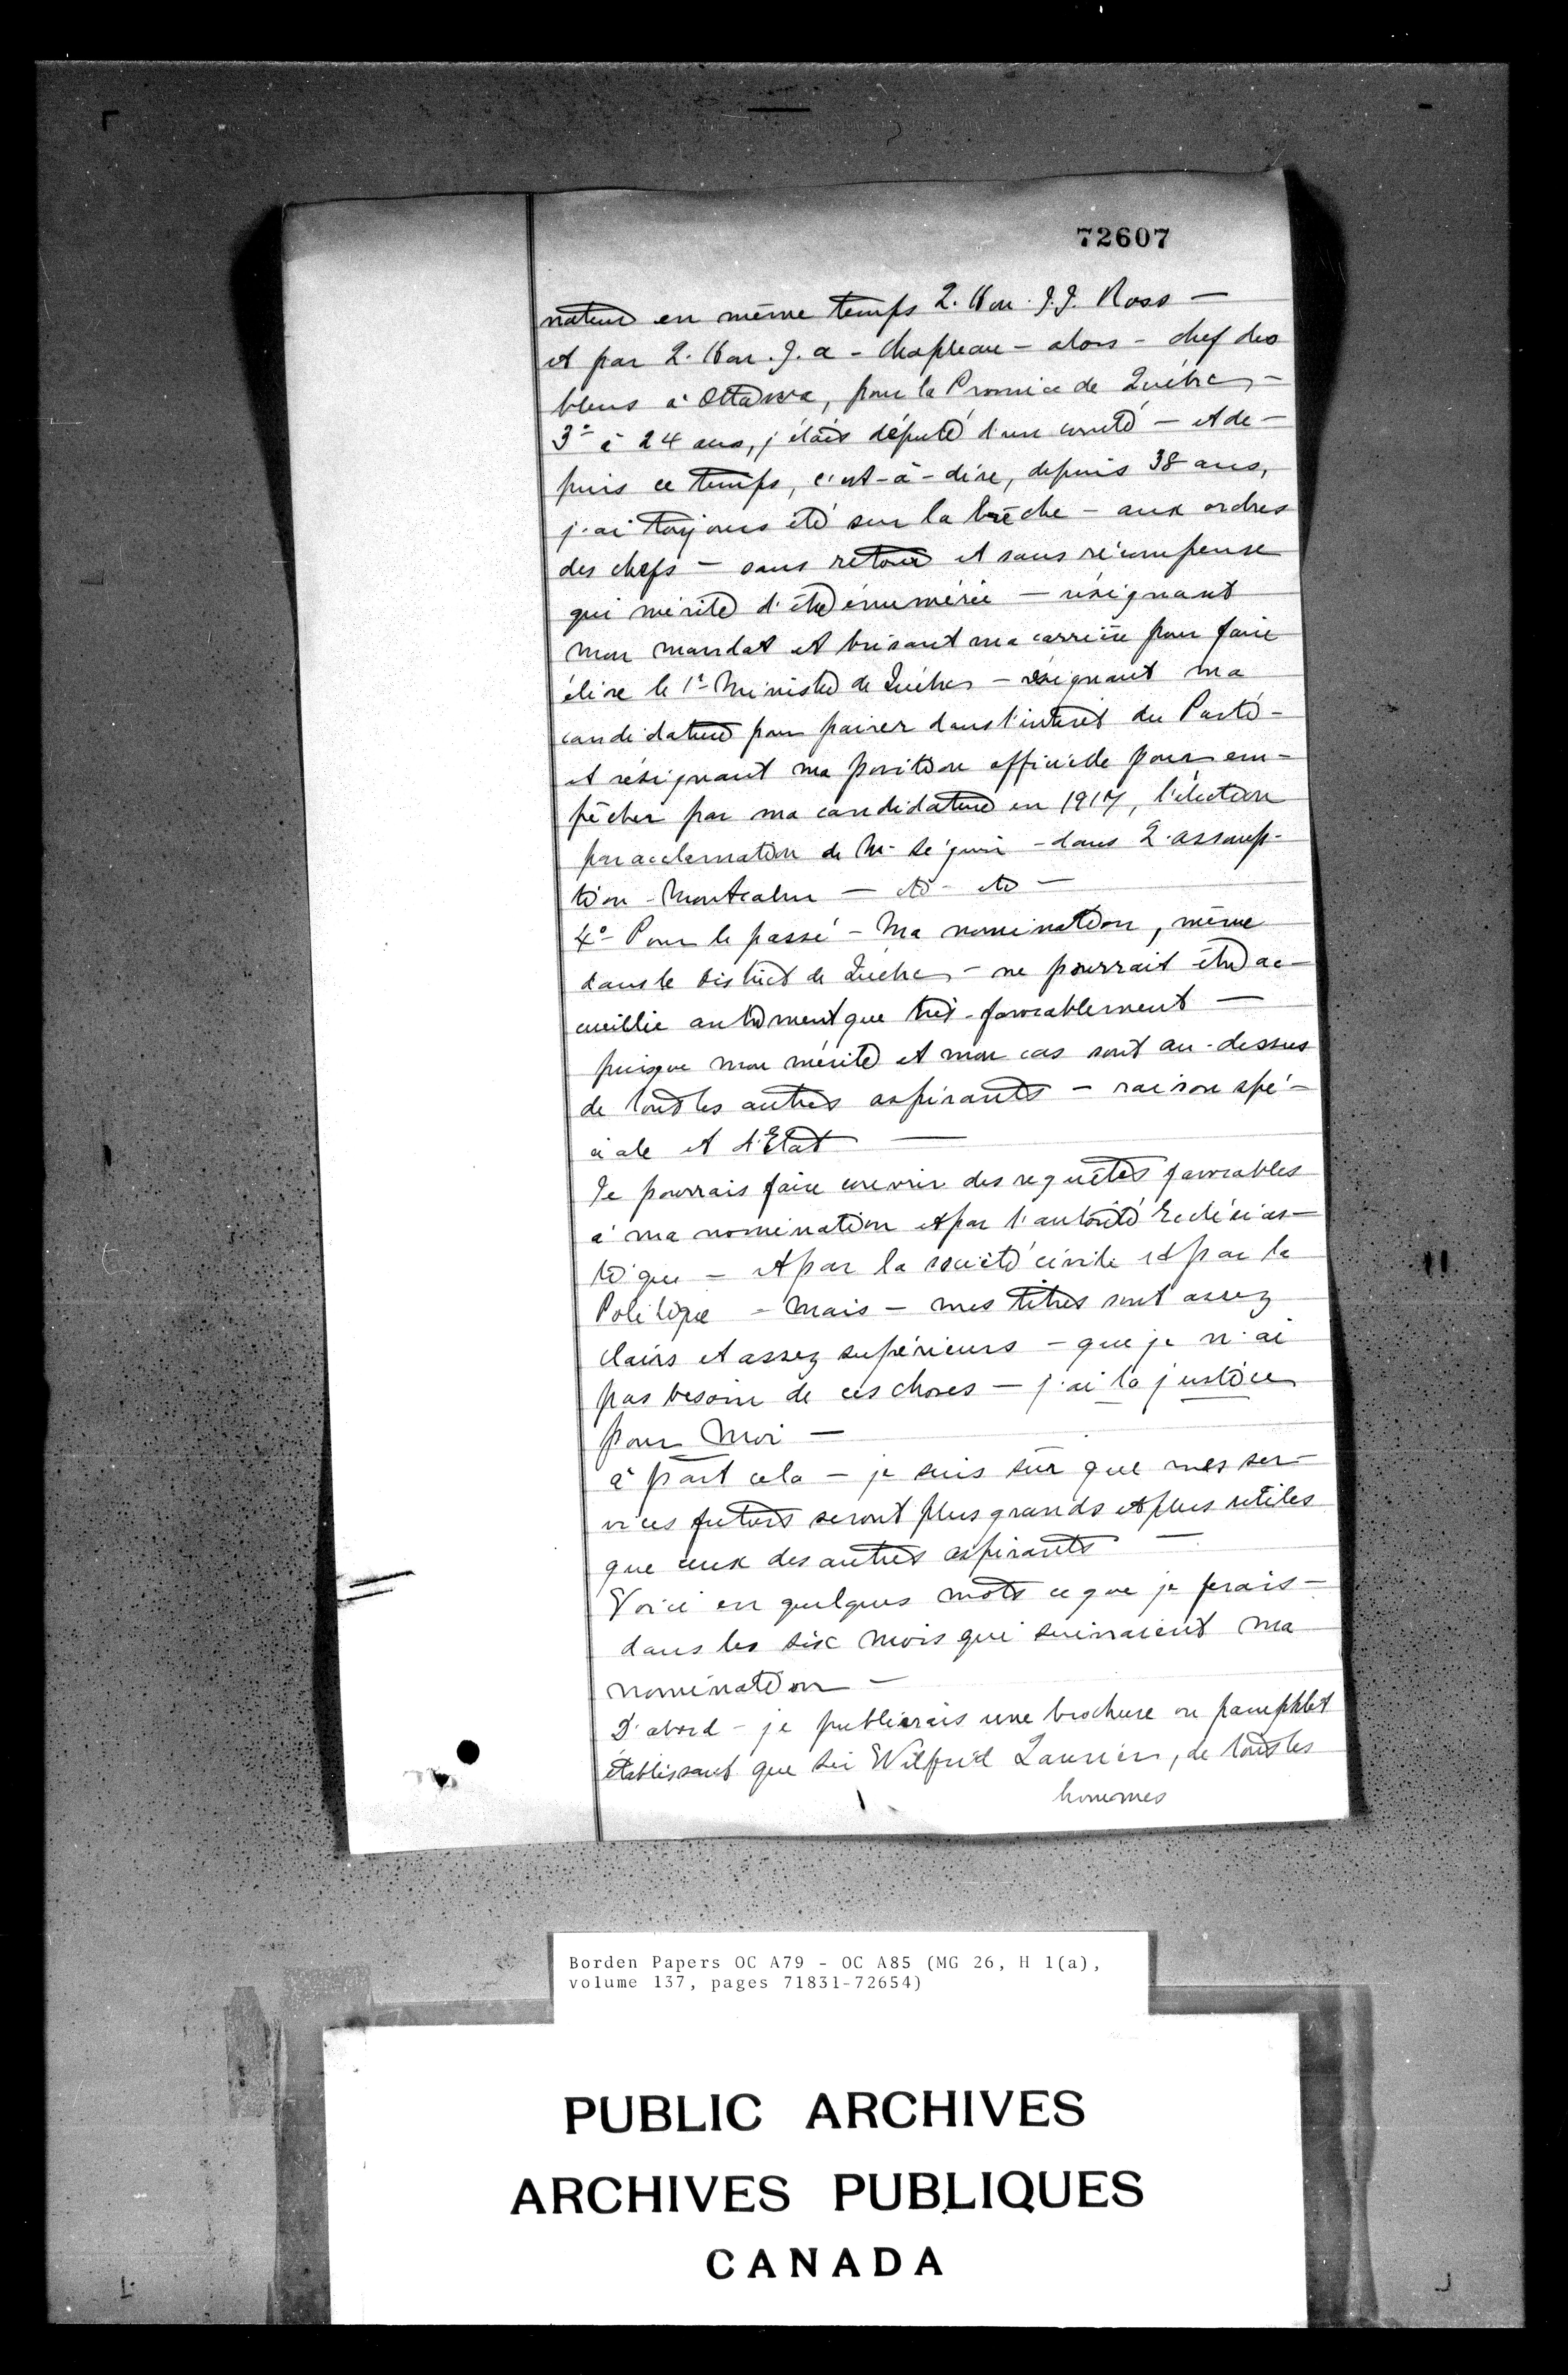 72607
nateur en même temps L. Hon. J.J. Ross —
et par L. Hon. J. A - Chapleau - alors - chef des
bleus à Ottawa, pour la Province de Québec, -
3° à 24 ans, j'étais député d'un comté — et de -
puis ce temps, c'est-à-dire, depuis 38 ans,
j'ai toujours été sur la brêche - aux ordres
des chefs - sans retour et sans récompense
qui mérite d'être énumérée — résignant
mon mandat et brisant ma carrière pour faire
élire le 1er Ministre de Québec - résignant ma
candidature pour pairer dans l'intérêt du Parti -
et résignant ma position officielle pour em-
pêcher par ma candidature en 1917, l'élection
par acclamation de M. Séguin - dans L'assomp-
tion - Montcalm — etc - etc —
4°- Pour le passé - Ma nomination, même
dans le District de Québec, - ne pourrait être ac-
cueillie autrement que très-favorablement —
puisque mon mérite et mon cas sont au-dessus
de tous les autres aspirants - raison spé-
ciale et d'Etat —
Je pourrais faire couvrir des requêtes favorables
à ma nomination et par l'autorité Ecclésias-
tique - et par la société civile et par la
Politique - Mais - mes titres sont assez
clairs et assez supérieurs - que je n'ai
pas besoin de ces choses - j'ai la justice
pour Moi —
à part cela - je suis sûr que mes ser-
vices futurs seront plus grands et plus utiles
que ceux des autres aspirants —
Voici en quelques mots ce que je ferais -
dans les six mois qui suivraient ma
nomination —
D'abord - je publierais une brochure ou pamphlet
établissant que Sir Wilfrid Laurier, de tous les
hommes
Borden Papers OC A79 - OC A85 (MG 26, H 1(a),
volume 137, pages 71831-72654)
PUBLIC ARCHIVES
ARCHIVES PUBLIQUES
CANADA